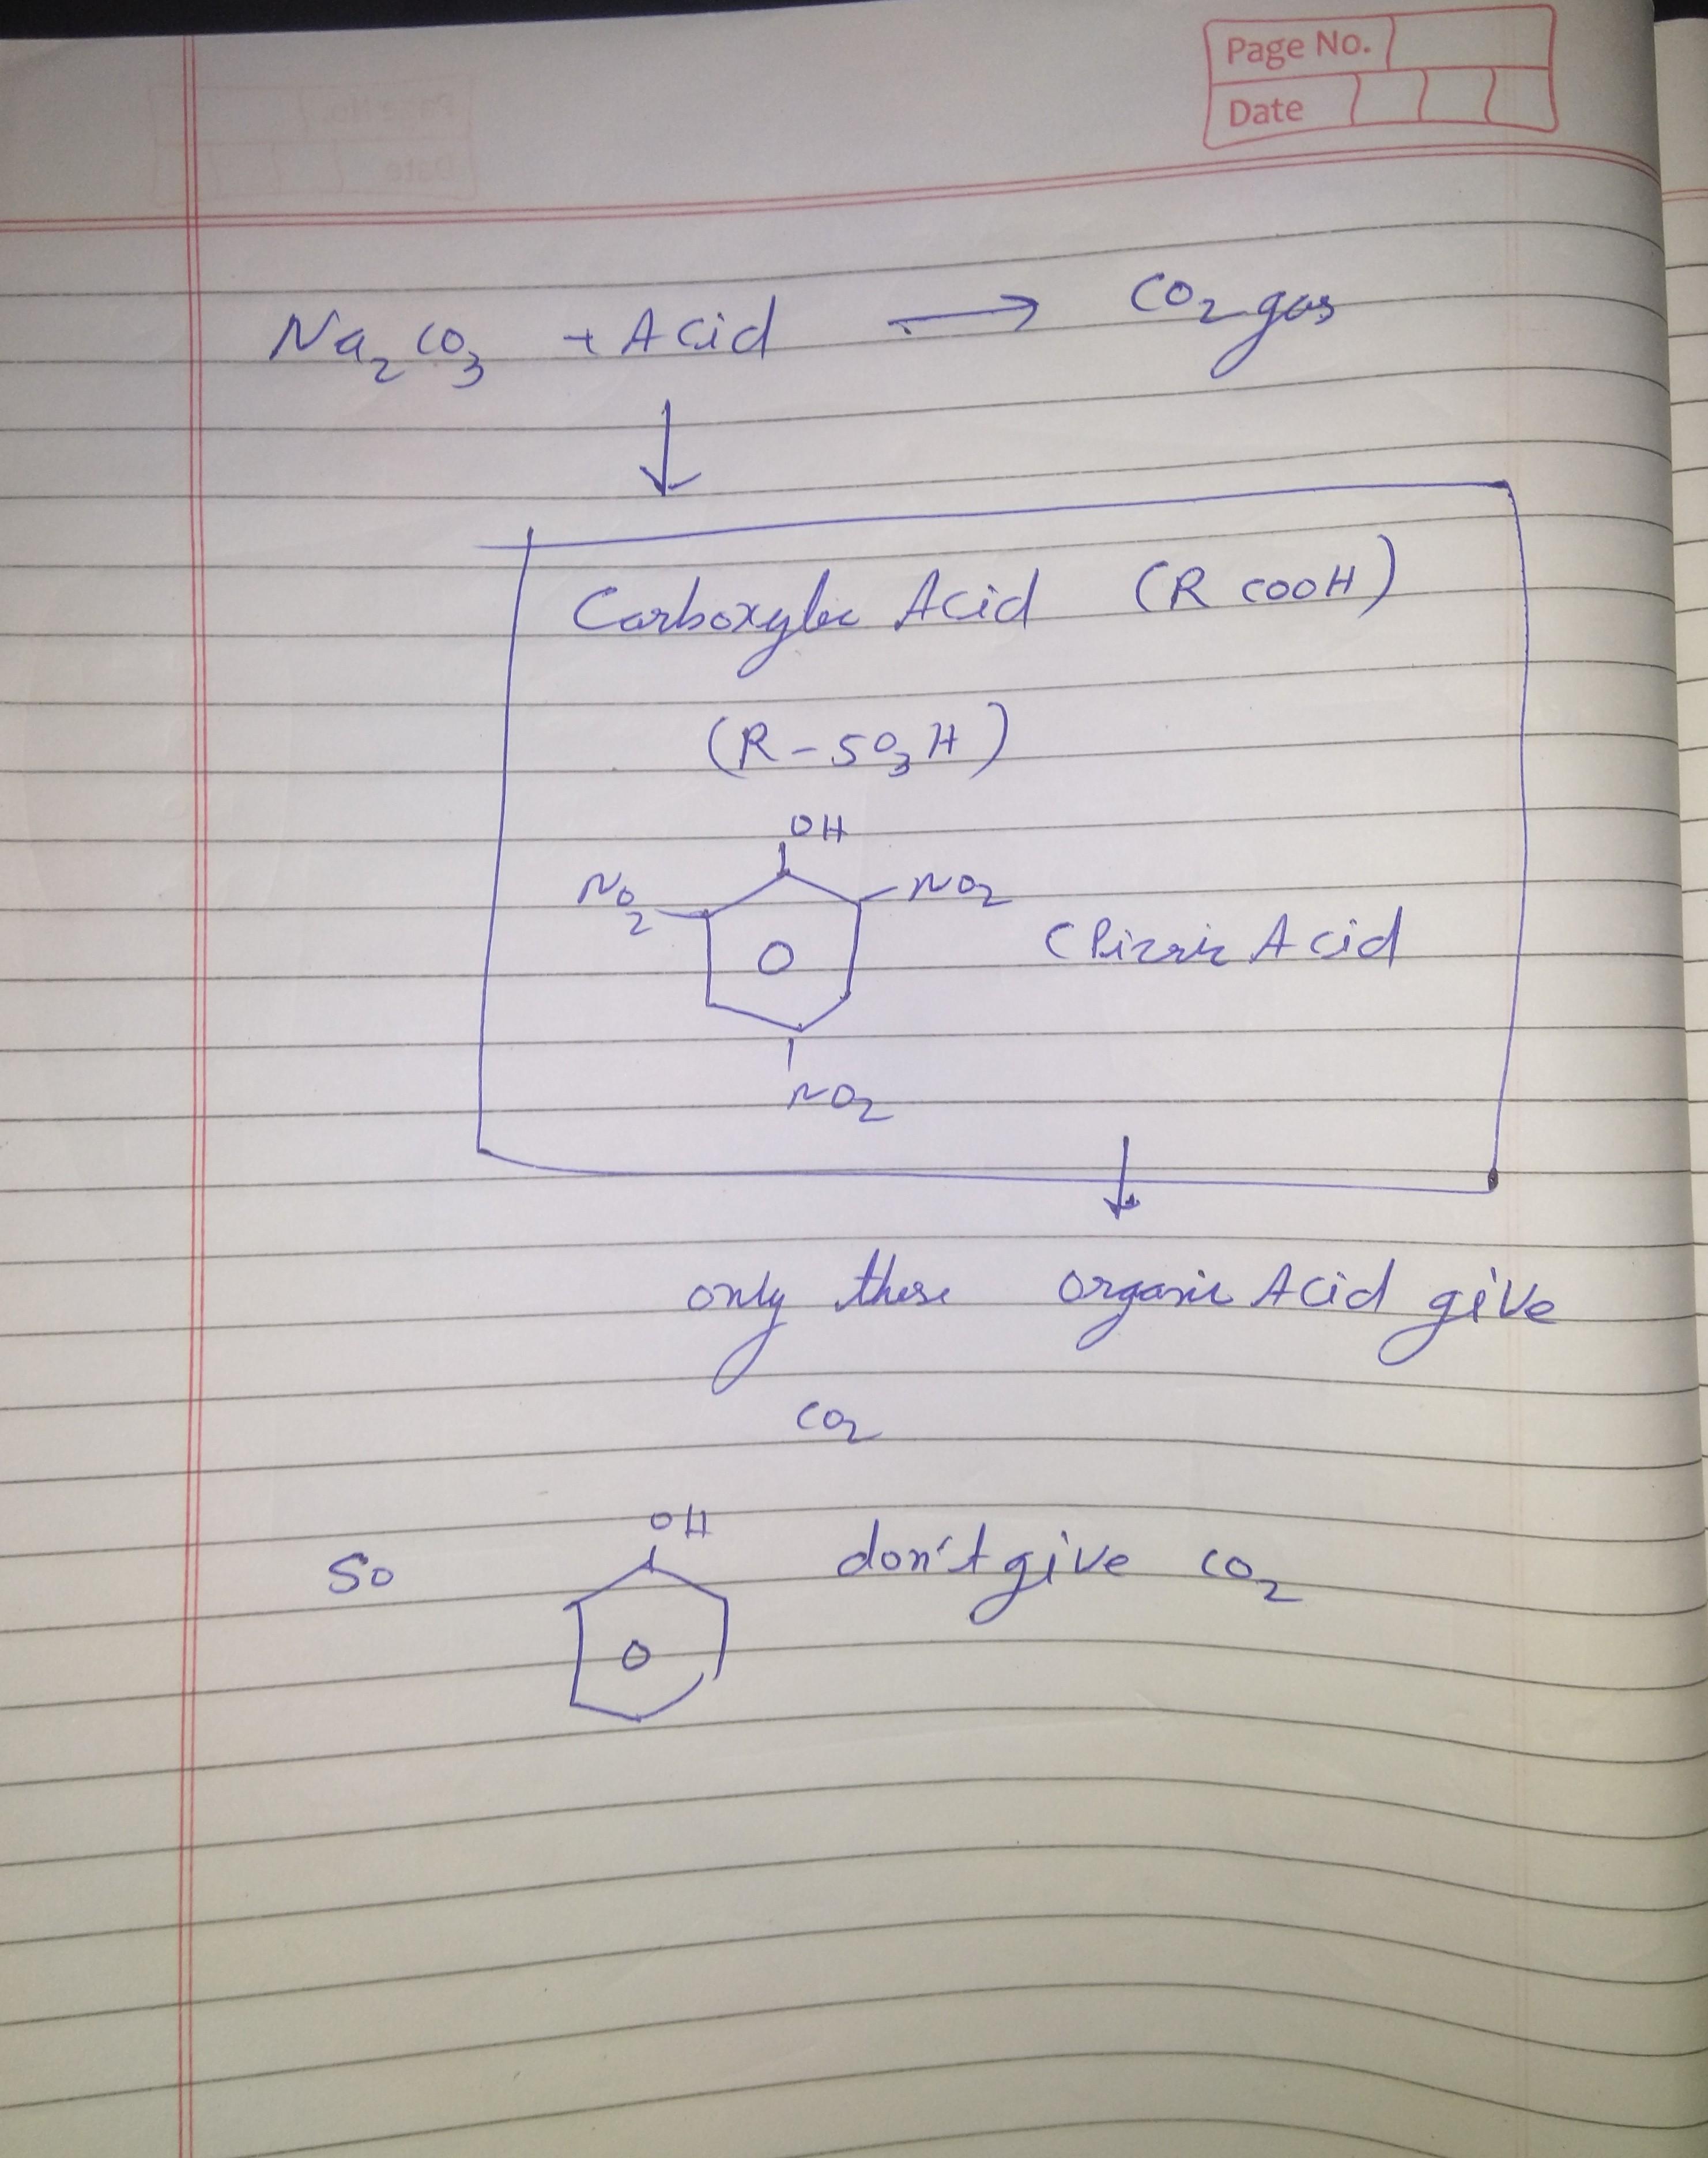 Page No.
Date
Na2CO3 + Acid → CO2 gas
↓
Carboxylic Acid (R COOH)
(R-SO3H)
OH
NO2 NO2
(Picric Acid
NO2
↓
only these organic Acid give
CO2
OH
So don't give CO2